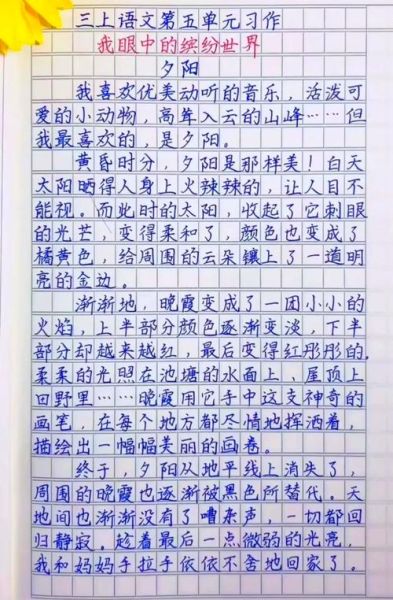 三上语文第五单元习作
我眼中的缤纷世界
夕阳
我喜欢优美动听的音乐，活泼可
爱的小动物，高耸入云的山峰……但
我最喜欢的，是夕阳。
黄昏时分，夕阳是那样美！白天
太阳晒得人身上火辣辣的，让人目不
能视。而此时的太阳，收起了它刺眼
的光芒，变得柔和了，颜色也变成了
橘黄色，给周围的云朵镶上了一道明
亮的金边。
渐渐地，晚霞变成了一团小小的
火焰，上半部分颜色逐渐变淡，下半
部分却越来越红，最后变得红彤彤的。
柔柔的光照在池塘的水面上、屋顶上
回野里……晚霞用它手中这支神奇的
画笔，在每个地方都尽情地挥洒着，
描绘出一幅幅美丽的画卷。
终于，夕阳从地平线上消失了，
周围的晚霞也逐渐被黑色所替代。天
地间也渐渐没有了嘈杂声，一切都回
归静寂。趁着最后一点微弱的光亮，
我和妈妈手拉手依依不舍地回家了。